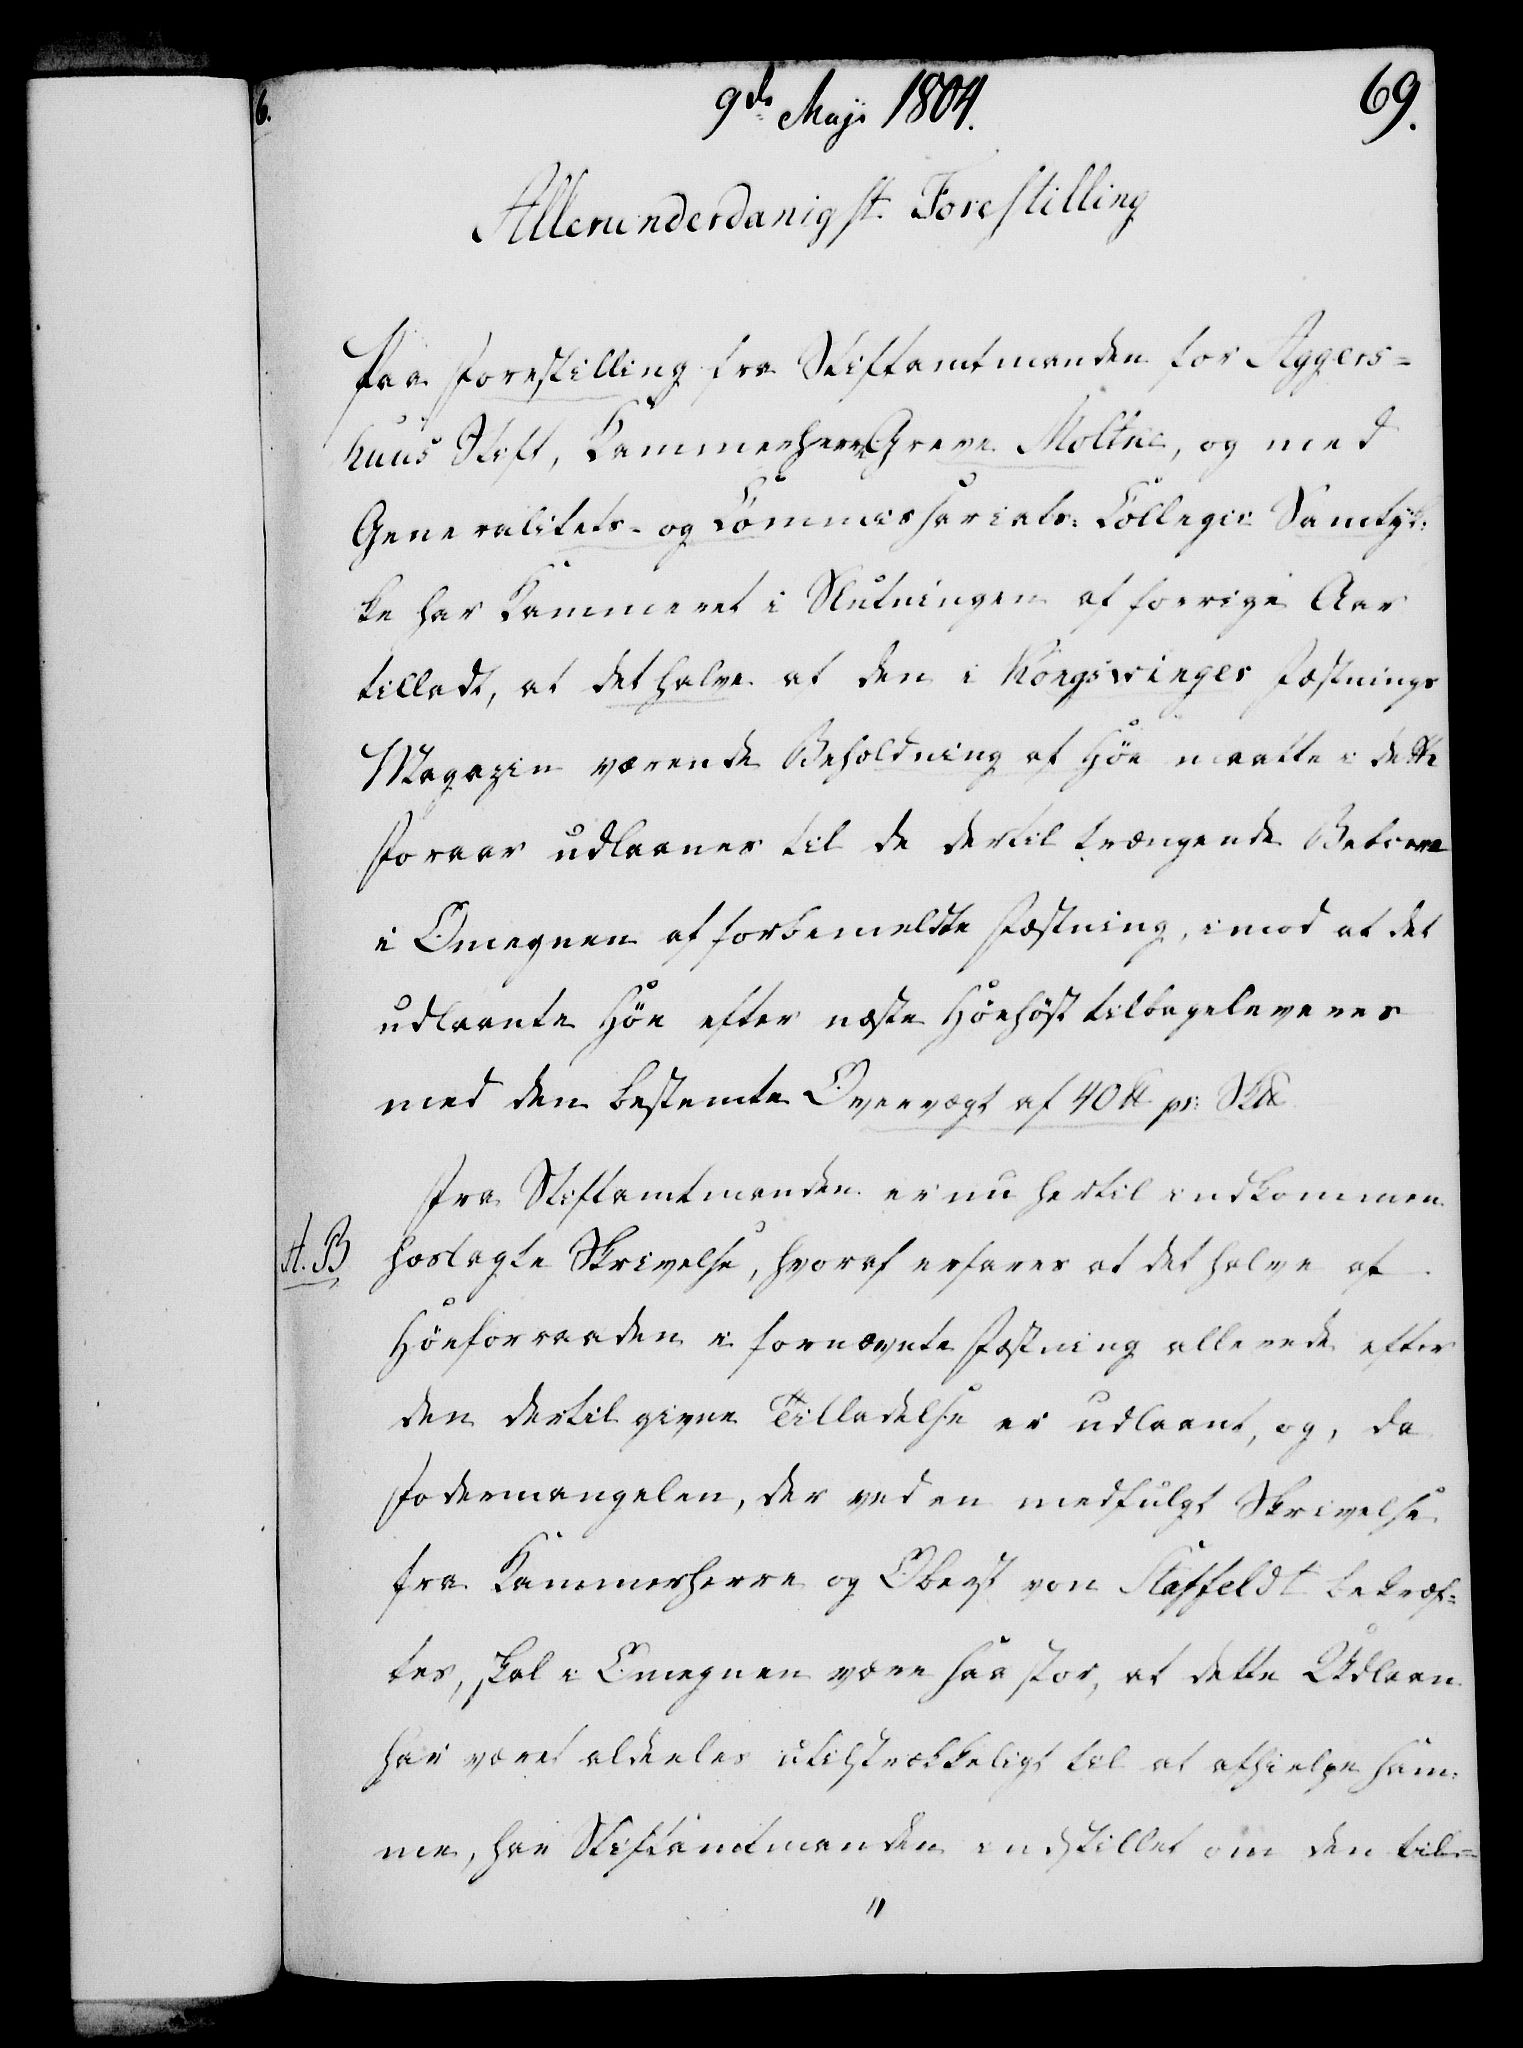 6.
9de Maji 1804.
69.
Allerunderdanigst Forestilling
Paa Forestilling fra Stiftamtmanden for Aggers=
huus Stift, Kammerherre Greve Moltke, og med
Generalitets- og Commissariats: Collegii Samtyk:
ke har Kammeret i Slutningen af forrige Aar
tilladt, at det halve af den i Kongswinger Fæstnings
Magazin værende Beholdning af Höe maatte i dette
Foraar udlaanes til de dertil trængende Beboere
i Omegnen af forbemeldte Fæstning, imod at det
udlaante Höe efter næste Höehöst tilbageleveres
med den bestemte Overvægt af 40 ℔ pr: Sk℔
Fra Stiftamtmanden er nu hertil indkommen
A. B hoslagte Skrivelse, hvoraf erfares at det halve af
Höeforraaden i fornævnte Fæstning allerede efter
den dertil givne Tilladelse er udlaant, og, da
Fodermangelen, der ved en medfulgt Skrivelse
fra Kammerherre og Oberst von Staffeldt bekræf=
tes, skal i Omegnen være saa stor, at dette Udlaan
har været aldeeles utilstrækkeligt til at afhielpe sam:
me, har Stiftamtmanden indstillet om den til=
"